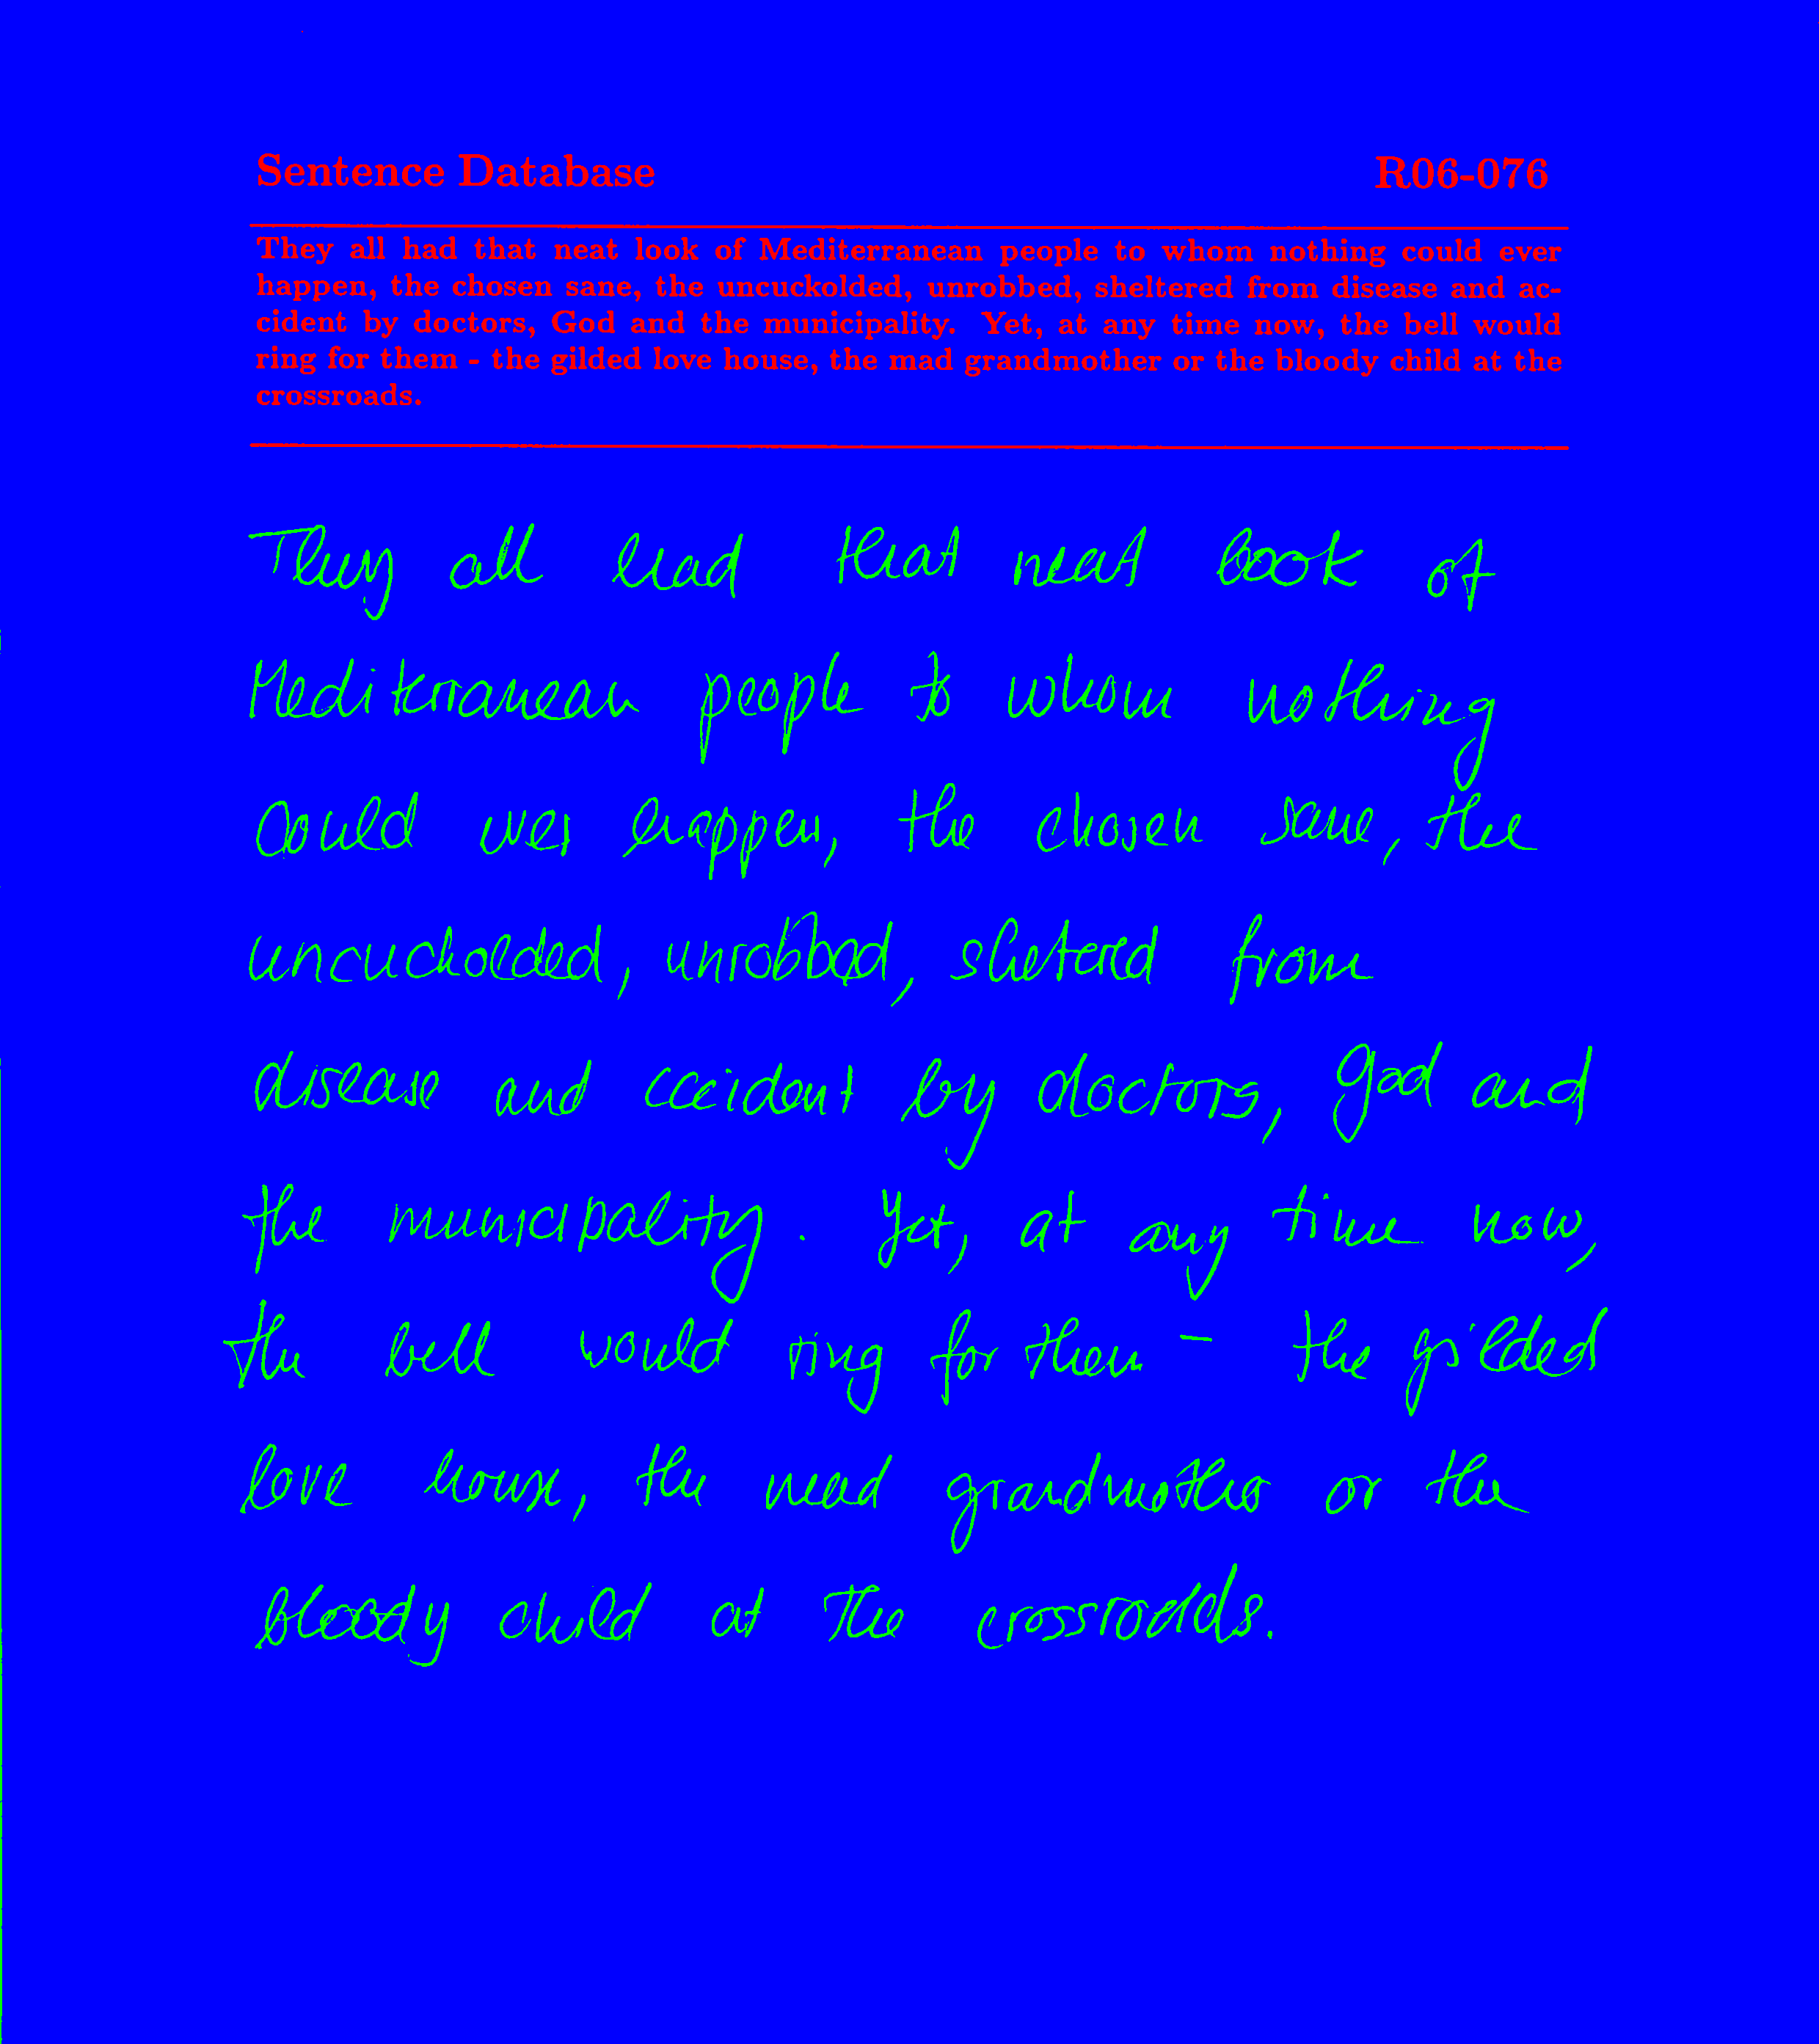 Sentence Database R06-076
They all had that neat look of Mediterranean people to whom nothing could ever
happen, the chosen sane, the uncuckolded, unrobbed, sheltered from disease and ac-
cident by doctors, God and the municipality. Yet, at any time now, the bell would
ring for them - the gilded love house, the mad grandmother or the bloody child at the
crossroads.
They all had that neat look of
Mediterranean people to whom nothing
could ever happen, the chosen sane, the
uncuckolded, unrobbed, shetered from
disease and ccident by doctors, God and
the municipality. Yet, at any time now,
the bell would ring for them - the gilded
love house, the mad grandmother or the
bloody child at the crossroads.